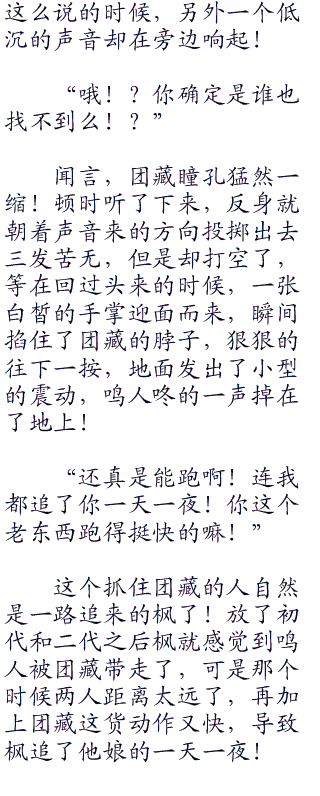 这么说的时候，另外一个低
沉的声音却在旁边响起！
“哦！？你确定是谁也
找不到么！？”
闻言，团藏瞳孔猛然一
缩！顿时听了下来，反身就
朝着声音来的方向投掷出去
三发苦无，但是却打空了，
等在回过头来的时候，一张
白皙的手掌迎面而来，瞬间
掐住了团藏的脖子，狠狠的
往下一按，地面发出了小型
的震动，鸣人咚的一声掉在
了地上！
“还真是能跑啊！连我
都追了你一天一夜！你这个
老东西跑得挺快的嘛！”
这个抓住团藏的人自然
是一路追来的枫了！放了初
代和二代之后枫就感觉到鸣
人被团藏带走了，可是那个
时候两人距离太远了，再加
上团藏这货动作又快，导致
枫追了他娘的一天一夜！